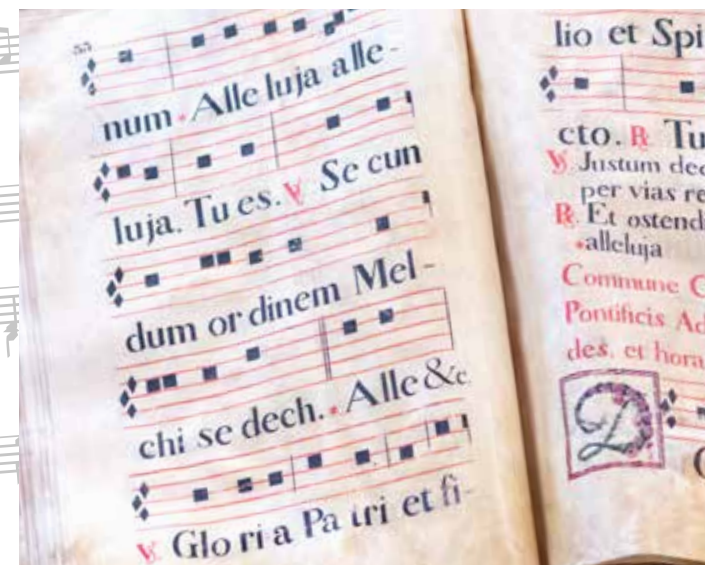 num. Alle luja alle-
luja. Tu es. ℣ Se cun
dum or dinem Mel-
chi se dech. Alle &c
℣. Glo ri a Pa tri et fi-
lio et Spi
cto. ℟ Tu
℣. Justum dec
per vias re
℟. Et ostendi
alleluja
Commune C
Pontificis Ad
des. et hora
D